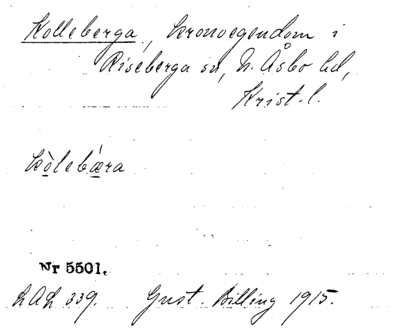 Kolleberga, kronoegendom i
Riseberga sn, N. Åsbo hd,
Krist. l.
kòlebǽra
Nr 5501.
LAL 339. Gust. Billing 1915.